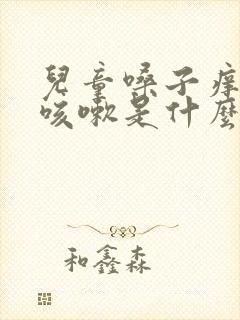 兒童嗓子痒
咳嗽是什麼
和鑫森